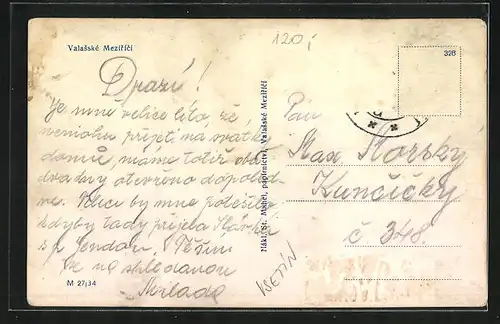 Valašské Meziříčí
120,-
326
Drazí!
Je mně velice líto, že
nemohu přijeti na svátky
domů, máme totiž oba
dva dny otevřeno dopoled
ne. Velice by mne potěšilo
kdyby tady přijela Slávka
s Jendou. Těším
se na shledanou
Milada
M 27|34
Nákl. St. Mohel, papírnictví, Valašské Meziříčí
Pán
Max Horský
Kunčičky
č 348
VSETÍN